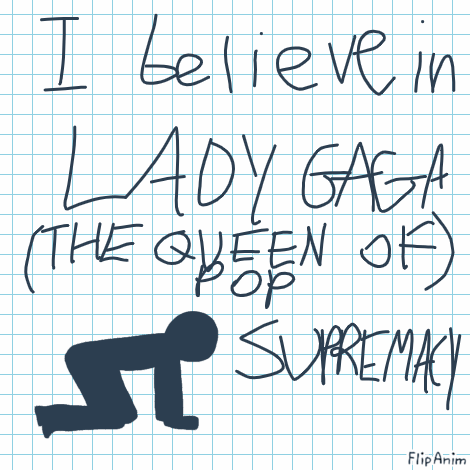 I believe in
LADY GAGA
(THE QUEEN OF)
POP
SUPREMACY
FlipAnim